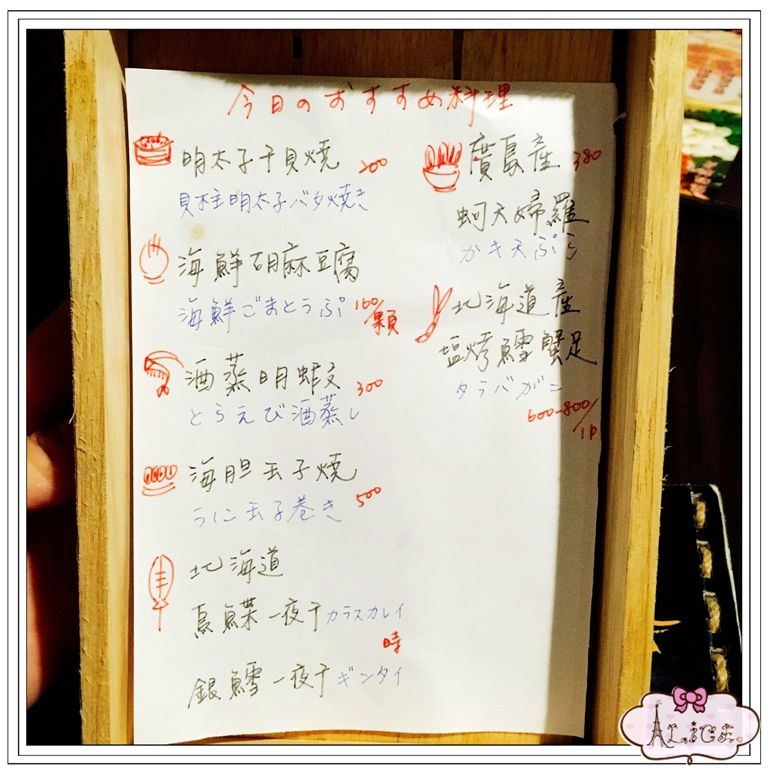 今日のおすすめ料理
明太子干貝燒 200
貝柱明太子バタ焼き
海鮮胡麻豆腐
海鮮ごまとうふ 160/顆
酒蒸明蝦 300
とらえび酒蒸し
海胆玉子燒 500
うに玉子巻き
北海道
烏鰈一夜干 カラスカレイ
時
銀鱈一夜干 ギンタイ
廣島產 380
蚵天婦羅
かき天ぷら
北海道產
塩烤鱈蟹足
タラバガニ
600-800/1P
ALICE.